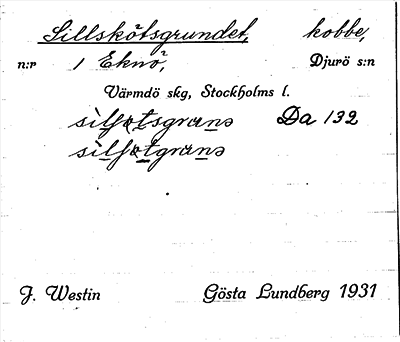 Sillskötsgrundet, kobbe,
n:r 1 Eknö, Djurö s:n
Värmdö skg, Stockholms l.
Da 132
J. Westin Gösta Lundberg 1931